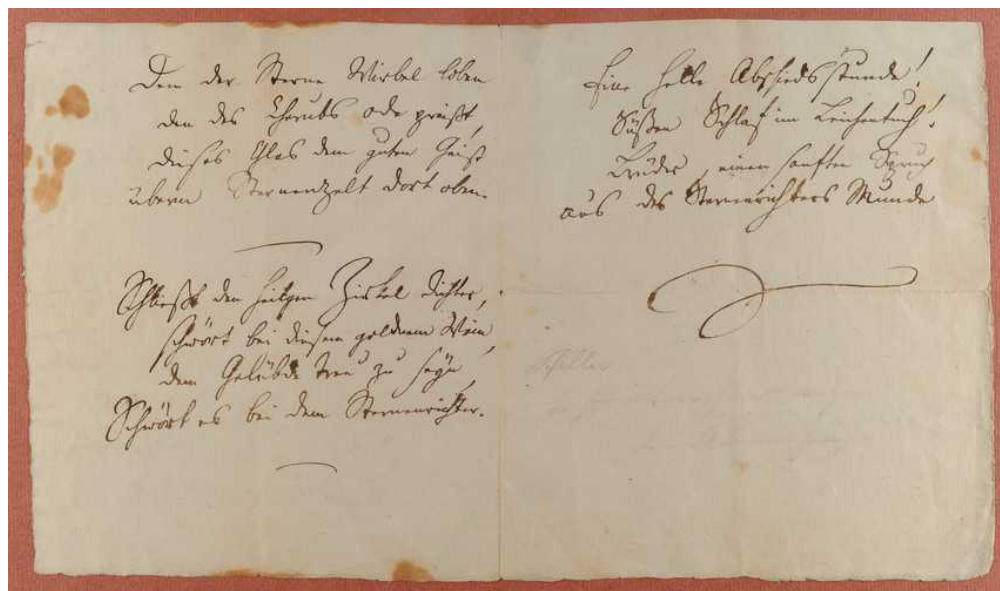 Den der Sterne Wirbel loben
den des Cherubs Ode preißt,
dieses Glas dem guten Geist
überm Sternenzelt dort oben.
Schließt den heilgen Zirkel dichter,
schwört bei diesem goldnem Wein,
dem Gelübde treu zu seyn,
Schwört es bei dem Sternenrichter.
Eine helle Abschiedsstunde!
Süßen Schlaf im Leichentuch!
Brüder, einen sanften Spruch
aus des Sternenrichters Munde
Schiller